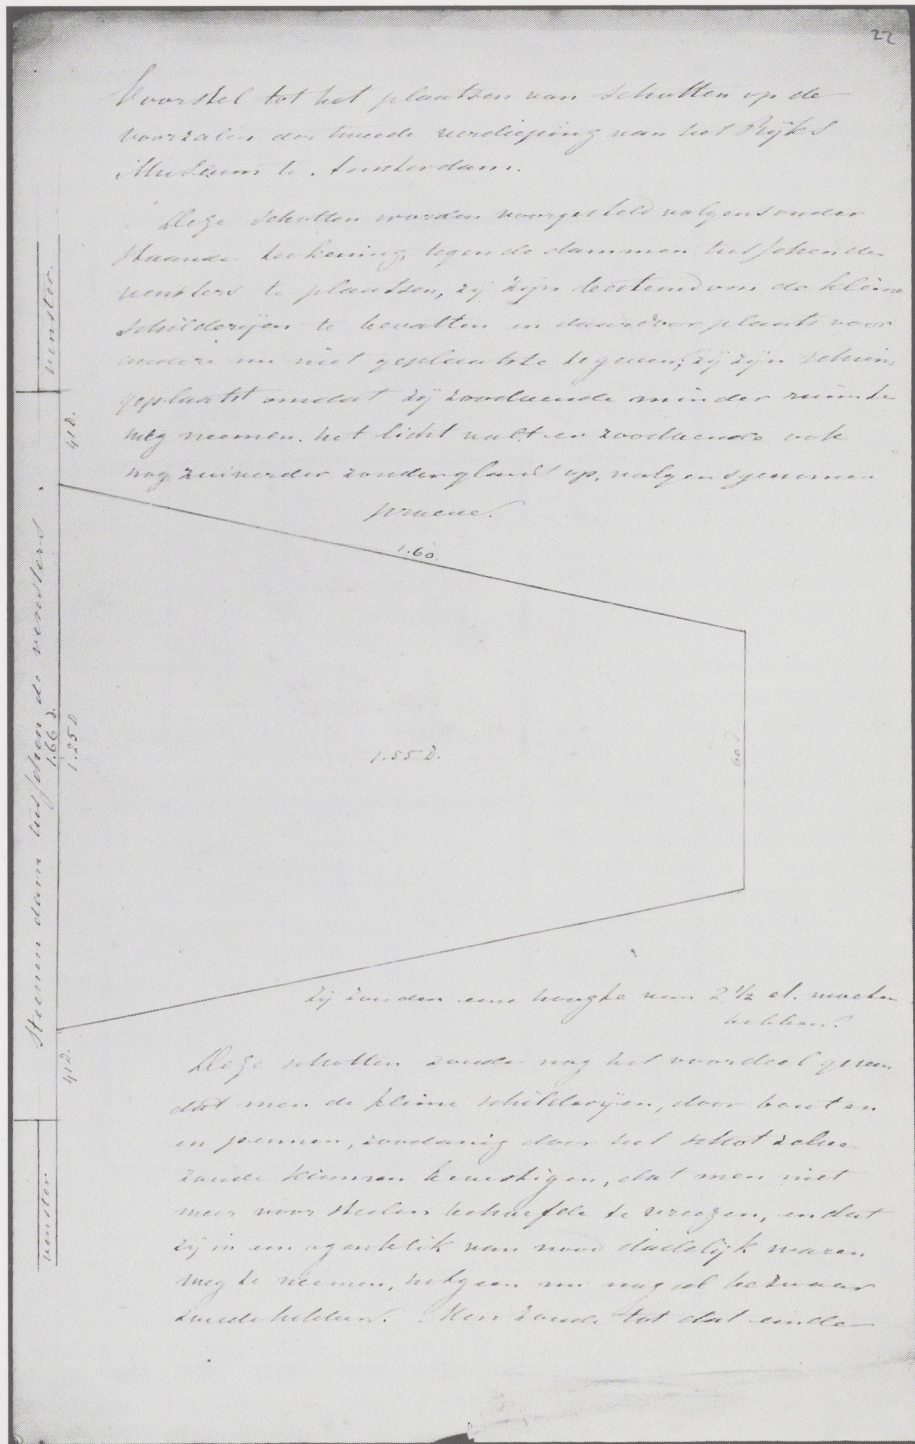 22
Voorstel tot het plaatsen van schotten op de
voorzalen der tweede verdieping van het Rijks
Museum te Amsterdam.
Deze schotten worden voorgesteld volgens onder
staande teekening, tegen de dammen tusschen de
vensters te plaatsen, zij zijn bestemd om de kleine
schilderijen te bevatten en daardoor plaats voor
andere nu niet geplaatste te geven; zij zijn schuin
geplaatst omdat zij zoodoende minder ruimte
weg neemen. het licht valt er zoodoende ook
nog zuiverder zonder glans op, volgens genomen
proeve.
venster.
41 D.
1.60.
Steenen dam tusschen de vensters
1.66 D.
1.25 D
1.55 D.
60 D
41 D.
venster.
Zij zouden eene hoogte van 2 1/2 el. moeten
hebben.
Deze schotten zoude nog het voordeel geven
dat men de kleine schilderijen, door bouten
en pennen, zoodanig door het schot zelve
zoude kunnen bevestigen, dat men niet
meer voor steelen behoefde te vreezen, en dat
zij in een ogenblik van nood dadelijk waren
weg te neemen, hetgeen nu nog al bezwaar
zoude hebben. Men zoude tot dat einde